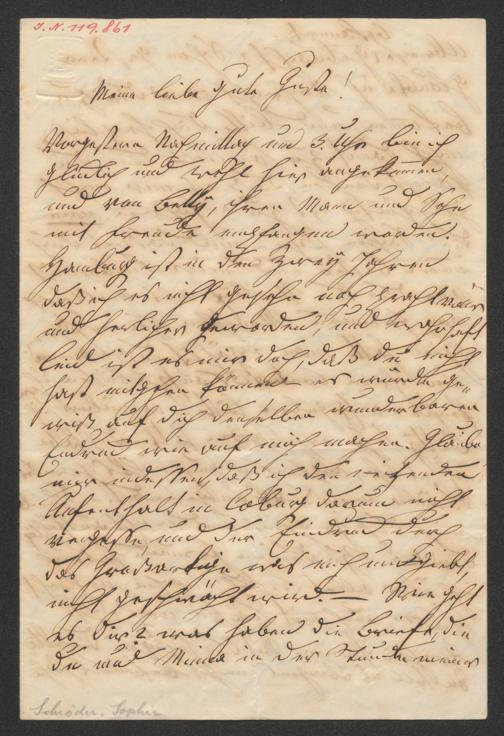 I.N. 119.861
Meine liebe gute Guste!
Vorgestern Nachmittag um 3 Uhr bin ich
glücklich und wohl hier angekommen
und von Betty, ihren Mann und Sohn
mit Freude empfangen worden.
Hamburg ist in den zwey Jahren
daß ich es nicht gesehn noch prachtvoller
und herlicher geworden, und wahrhaft
leid ist es mir doch, daß du nicht
hast mitgehen können es würde ge-
wiß auf dich denselben wunderbaren
Eindruck wie auf mich machen. Glaube
mir indessen, daß ich den reizenden
Aufenthalt in Coburg darum nicht
vergesse, und der Eindruck durch
das Großartige was mich umgiebt,
nicht geschwächt wird. — Wie geht
es Dir? was haben die Briefe, die
du und Minna in der Stunde meiner
Schröder, Sophie